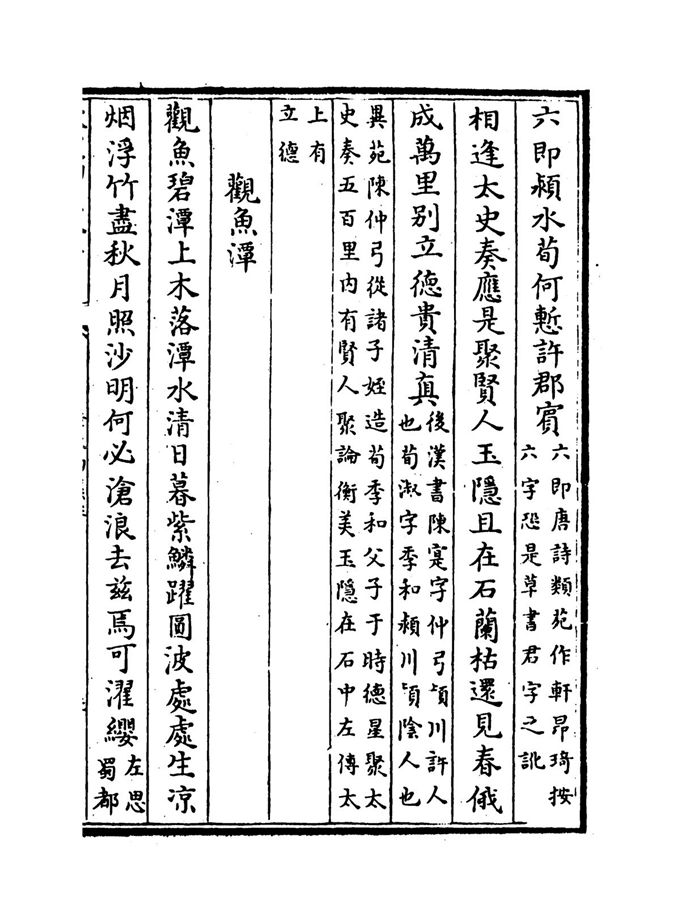 六即潁水荀何慙許郡賓六即唐詩類苑作軒昻琦按
六字恐是草書君字之訛
相逢太史奏應是聚賢人玉隱且在石蘭枯還見春俄
成萬里别立德貴清真後漢書陳寔字仲弓潁川許人
也荀淑字季和潁川潁陰人也
異苑陳仲弓從諸子姪造荀季和父子于時德星聚太
史奏五百里内有賢人聚論衡美玉隱在石中左傳太
上有
立德
觀魚潭
觀魚碧潭上木落潭水清日暮紫鱗躍圓波處處生凉
烟浮竹盡秋月照沙明何必滄浪去兹焉可濯纓左思
蜀都